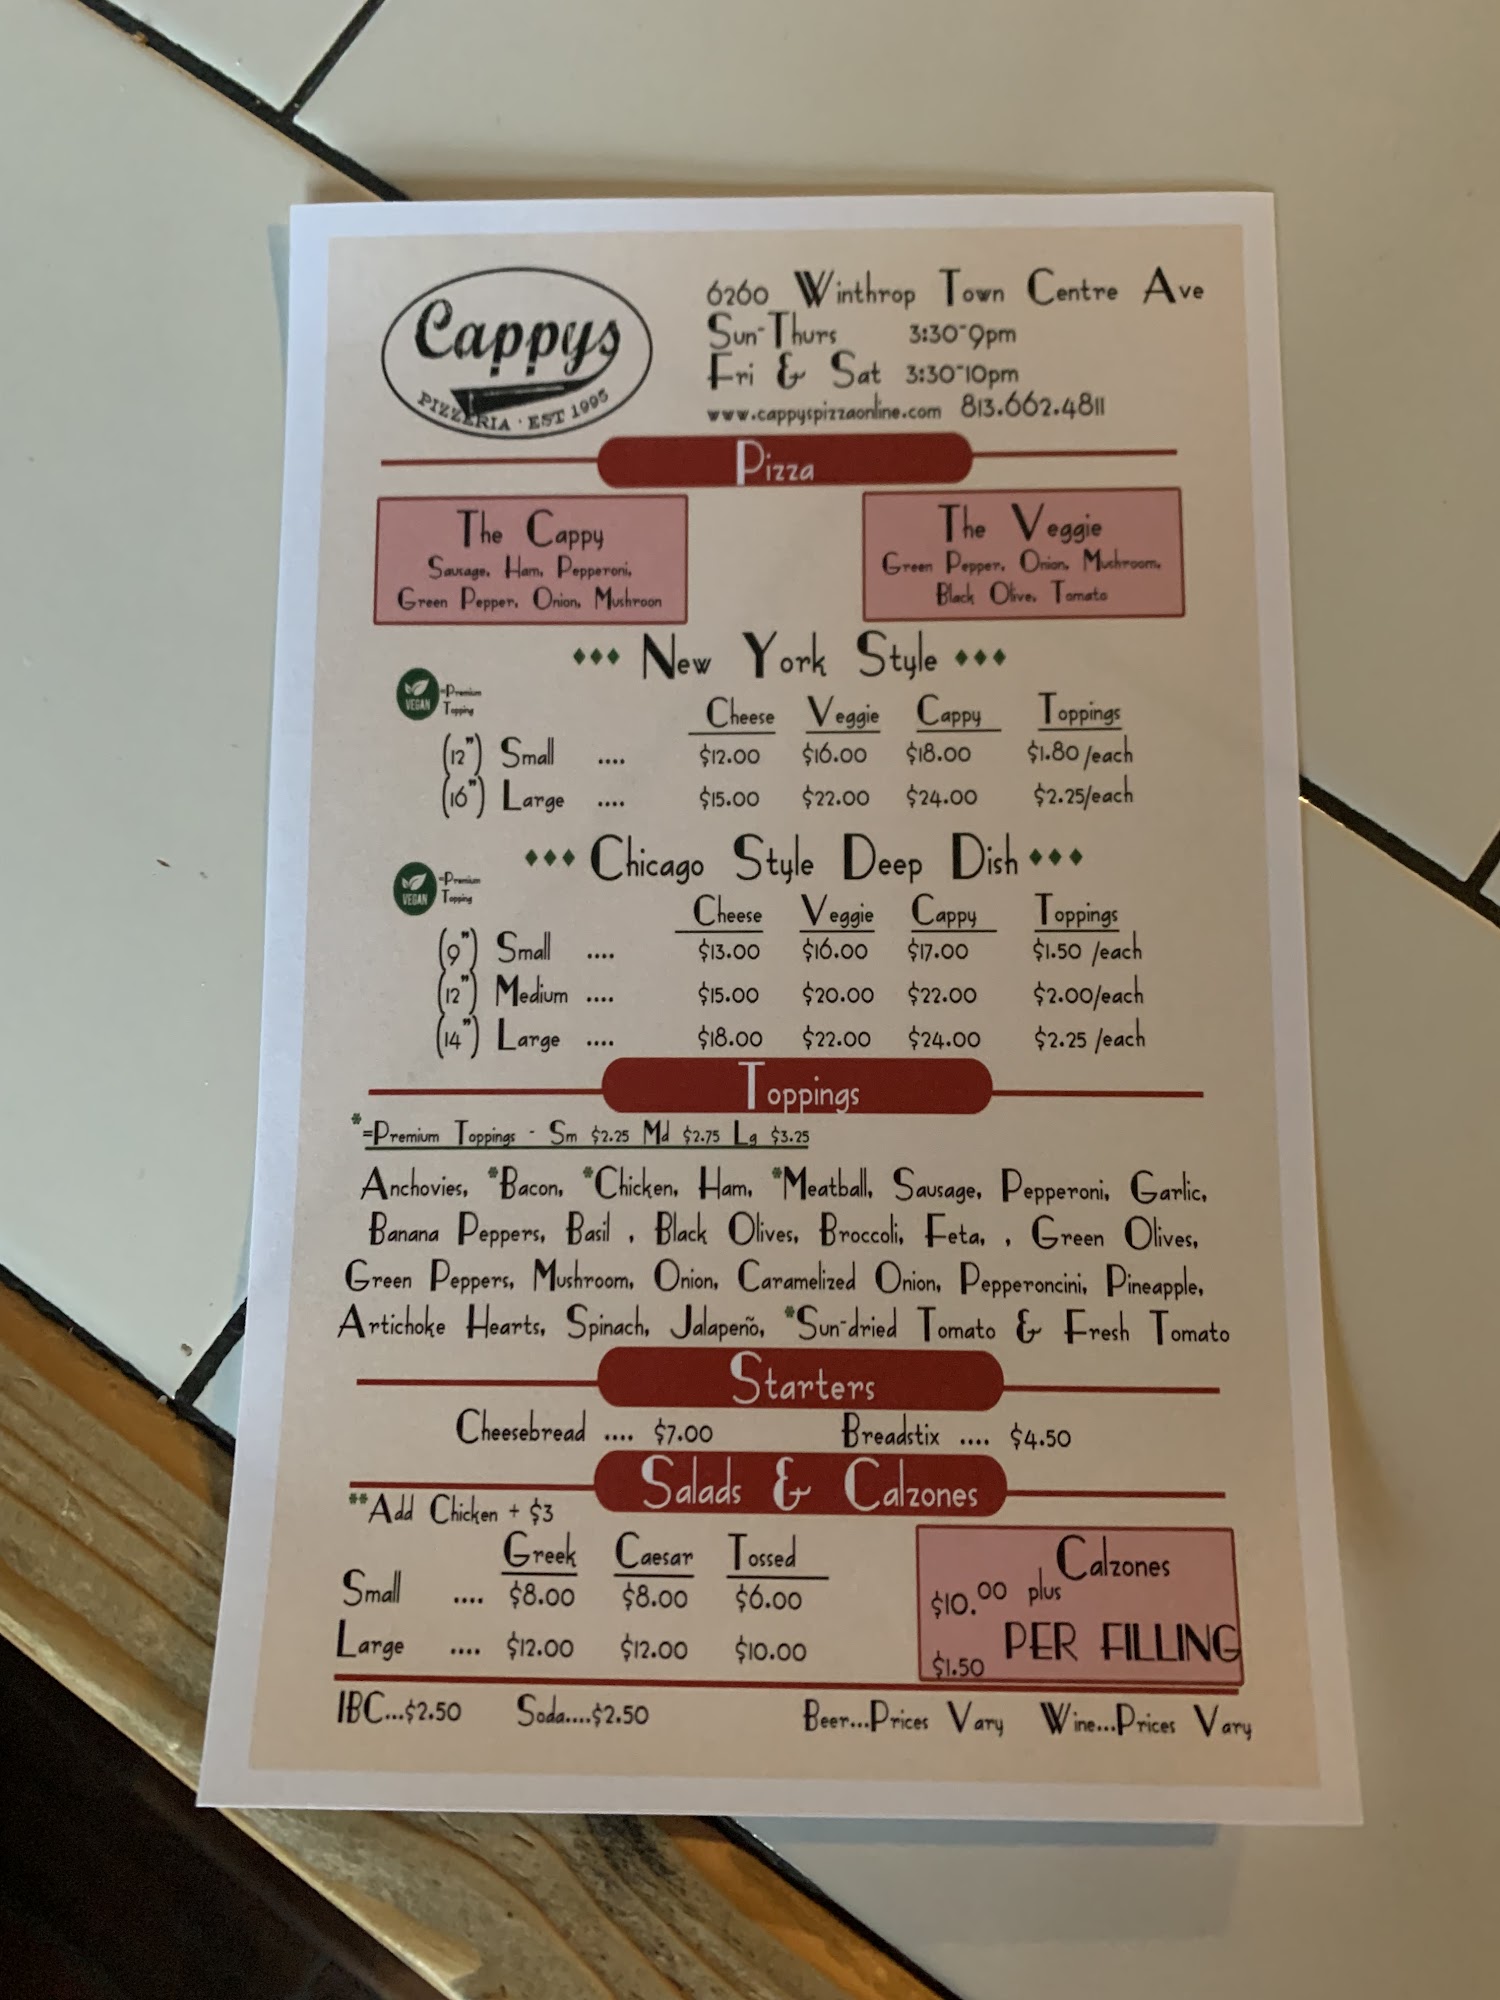 Cappys
PIZZERIA · EST 1995
6260 Winthrop Town Centre Ave
Sun-Thurs 3:30-9pm
Fri & Sat 3:30-10pm
www.cappyspizzaonline.com 813.662.4811
Pizza
The Cappy
Sausage, Ham, Pepperoni,
Green Pepper, Onion, Mushroon
The Veggie
Green Pepper, Onion, Mushroom,
Black Olive, Tomato
♦♦♦ New York Style ♦♦♦
VEGAN =Premium
Topping
Cheese Veggie Cappy Toppings
(12") Small .... $12.00 $16.00 $18.00 $1.80 /each
(16") Large .... $15.00 $22.00 $24.00 $2.25/each
♦♦♦ Chicago Style Deep Dish ♦♦♦
VEGAN =Premium
Topping
Cheese Veggie Cappy Toppings
(9") Small .... $13.00 $16.00 $17.00 $1.50 /each
(12") Medium .... $15.00 $20.00 $22.00 $2.00/each
(14") Large .... $18.00 $22.00 $24.00 $2.25 /each
Toppings
*=Premium Toppings - Sm $2.25 Md $2.75 Lg $3.25
Anchovies, *Bacon, *Chicken, Ham, *Meatball, Sausage, Pepperoni, Garlic,
Banana Peppers, Basil , Black Olives, Broccoli, Feta, , Green Olives,
Green Peppers, Mushroom, Onion, Caramelized Onion, Pepperoncini, Pineapple,
Artichoke Hearts, Spinach, Jalapeño, *Sun-dried Tomato & Fresh Tomato
Starters
Cheesebread .... $7.00 Breadstix .... $4.50
Salads & Calzones
**Add Chicken + $3
Greek Caesar Tossed
Small .... $8.00 $8.00 $6.00
Large .... $12.00 $12.00 $10.00
Calzones
$10.00 plus
$1.50 PER FILLING
IBC...$2.50 Soda....$2.50 Beer...Prices Vary Wine...Prices Vary